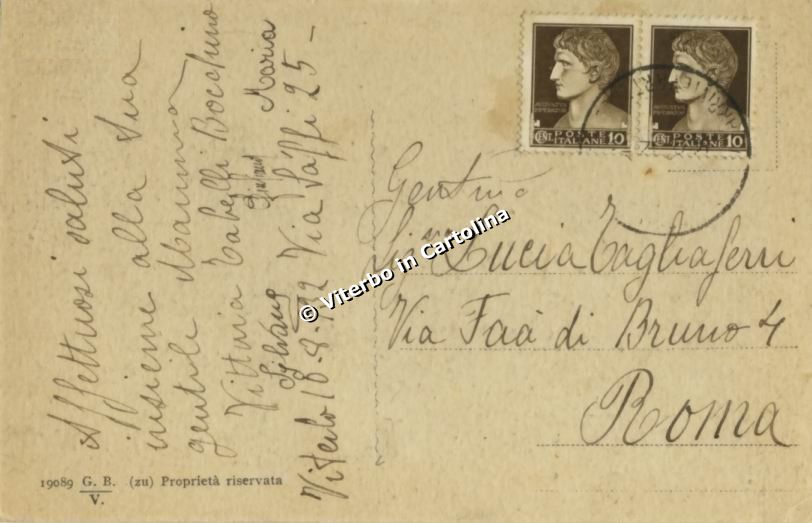 Affettuosi saluti
insieme alla Sua
gentile Mamma
Vittoria Tabelli Bocchino
Silvana Giuliana Maria
Viterbo 18-8-942 Via Saffi 25 -
19089 G. B. (zu) Proprietà riservata
V.
AVGVSTVS
IMPERATOR
CENT. POSTE ITALIANE 10
AVGVSTVS
IMPERATOR
CENT. POSTE ITALIANE 10
Gent.ma
Sig.na Lucia Tagliaferri
Via Faà di Bruno 4
Roma
© Viterbo in Cartolina